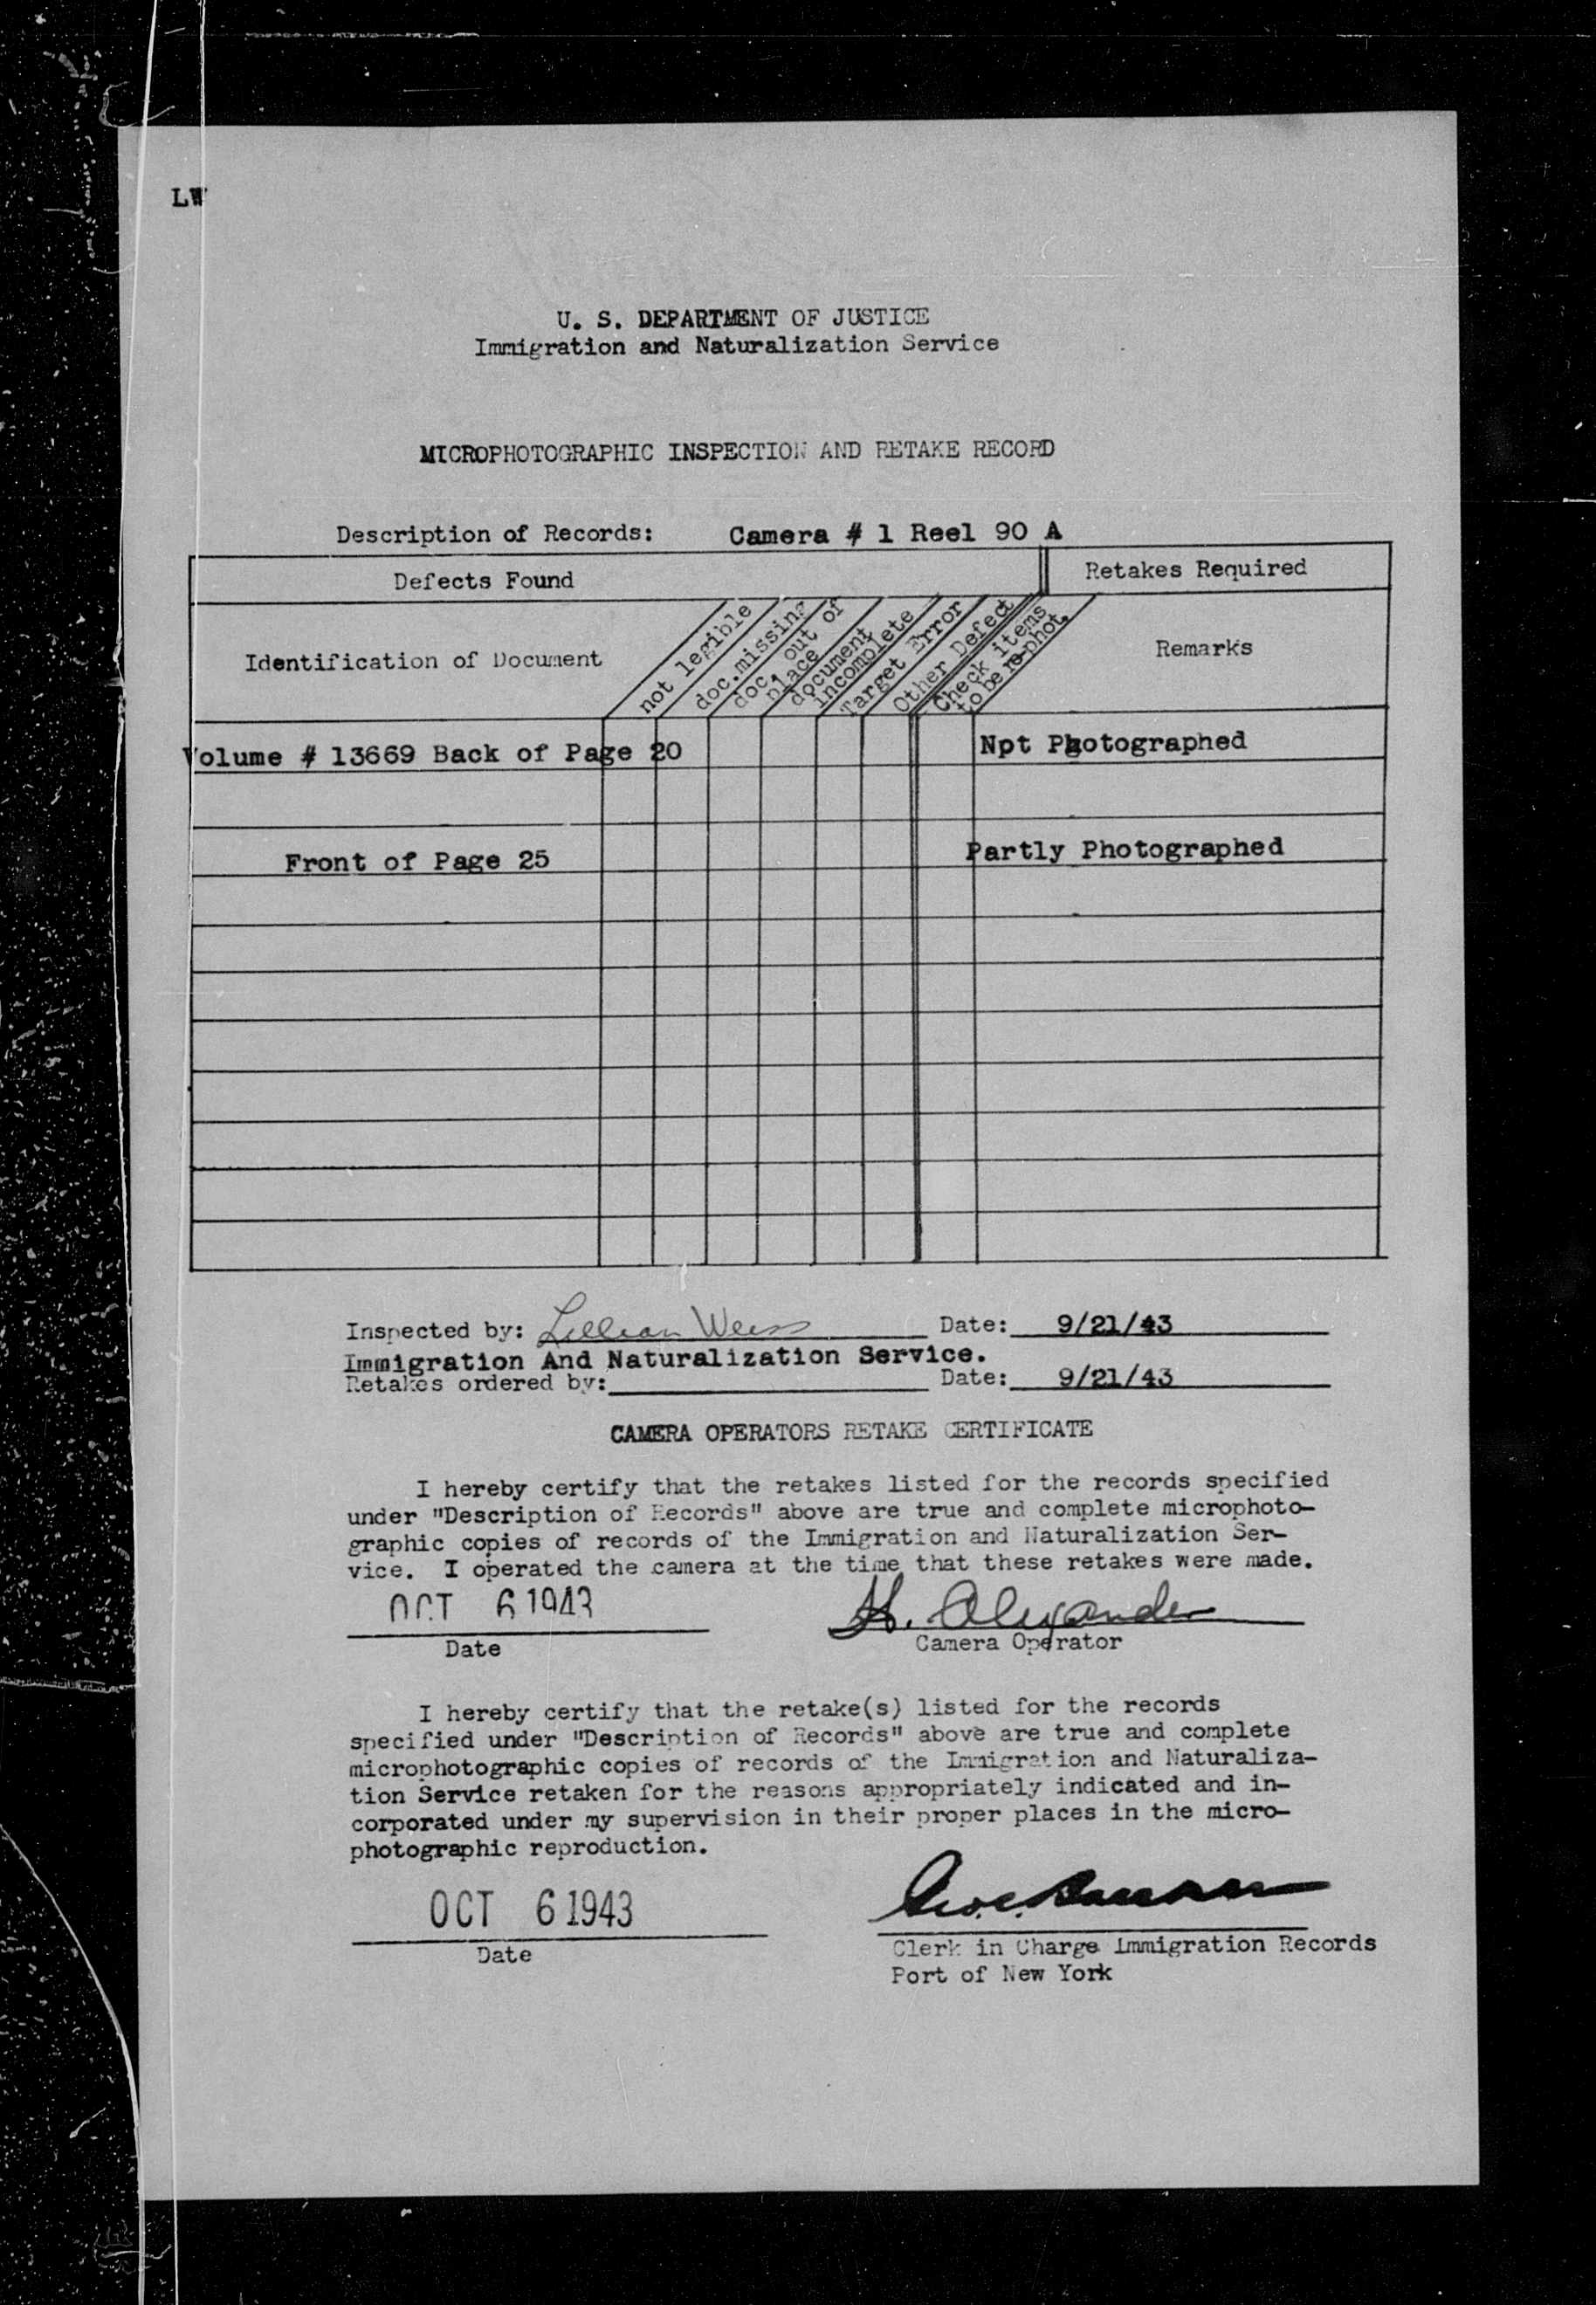 LW
U. S. DEPARTMENT OF JUSTICE
Immigration and Naturalization Service
MICROPHOTOGRAPHIC INSPECTION AND RETAKE RECORD
Description of Records: Camera # 1 Reel 90 A
Defects Found
Retakes Required
Identification of Document
not legible
doc. missing
doc. out of
place
document
incomplete
Target Error
Other Defect
Check items
to be re-phot.
Remarks
Volume # 13669 Back of Page 20
Npt Photographed
Front of Page 25
Partly Photographed
Inspected by: Lillian Weiss Date: 9/21/43
Immigration And Naturalization Service.
Retakes ordered by: Date: 9/21/43
CAMERA OPERATORS RETAKE CERTIFICATE
I hereby certify that the retakes listed for the records specified
under "Description of Records" above are true and complete microphoto-
graphic copies of records of the Immigration and Naturalization Ser-
vice. I operated the camera at the time that these retakes were made.
OCT 6 1943 H. Alexander
Date Camera Operator
I hereby certify that the retake(s) listed for the records
specified under "Description of Records" above are true and complete
microphotographic copies of records of the Immigration and Naturaliza-
tion Service retaken for the reasons appropriately indicated and in-
corporated under my supervision in their proper places in the micro-
photographic reproduction.
OCT 6 1943
Date
Clerk in Charge Immigration Records
Port of New York